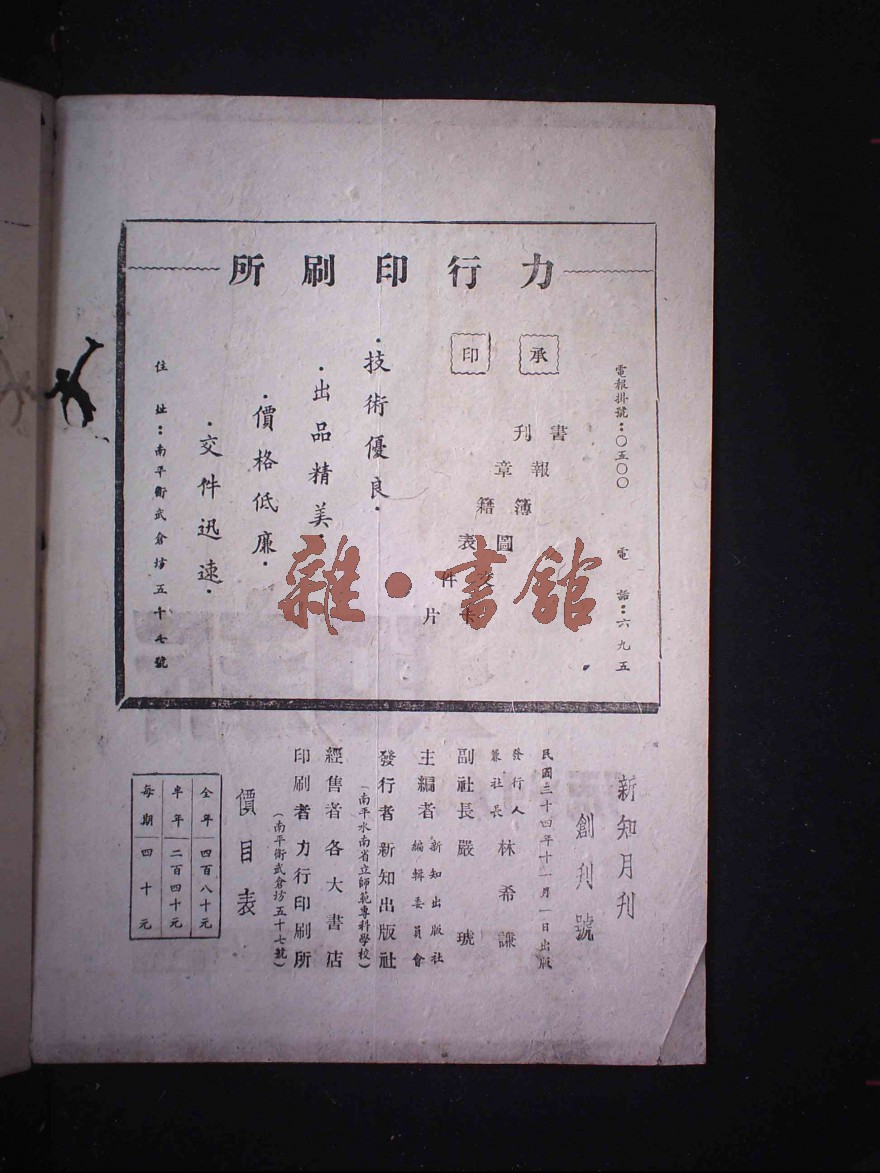 力行印刷所
電報掛號：〇五〇〇　電話：六九五
承印
書刊
報章
簿籍
圖表
件
片
·技術優良·
·出品精美·
·價格低廉·
·交件迅速·
住址：南平衛武倉坊五十七號
雜·書館
新知月刊
創刊號
民國三十四年十一月一日出版
發行人兼社長 林希謙
副社長 嚴琥
主編者 新知出版社編輯委員會
發行者 新知出版社
（南平水南省立師範專科學校）
經售者 各大書店
印刷者 力行印刷所
（南平衛武倉坊五十七號）
價目表
全年 四百八十元
半年 二百四十元
每期 四十元